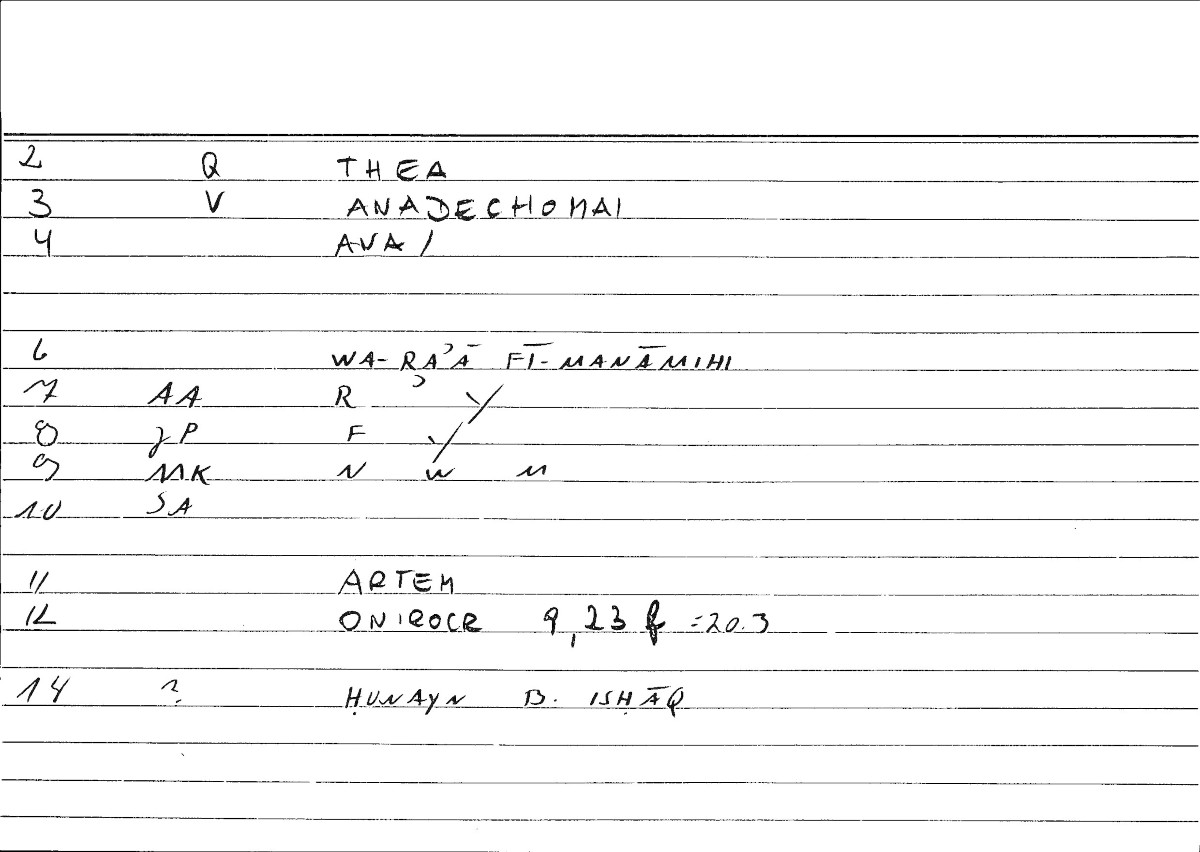 2 Q THEA
3 V ANADECHOMAI
4 AVA /
6 WA-RAʾĀ FĪ-MANĀMIHI
7 AA R ʾ Y
8 JP F Y
9 MK N W M
10 SA
11 ARTEM
12 ONIROCR 9,23 f =20.3
14 ? ḤUNAYN B. ISḤĀQ